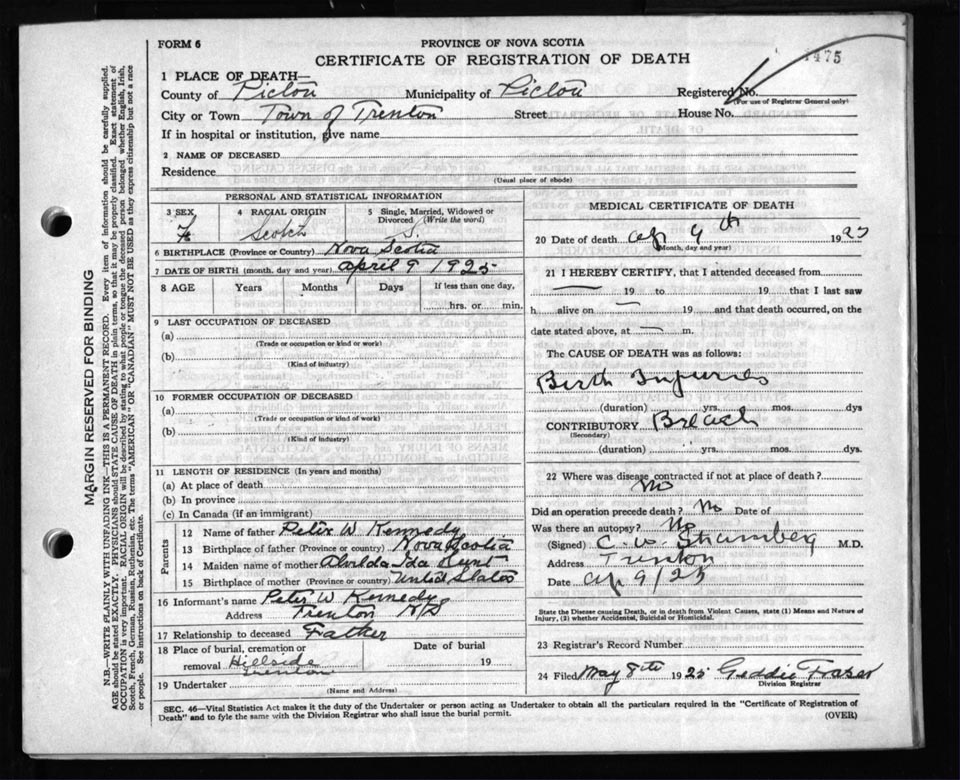 FORM 6
PROVINCE OF NOVA SCOTIA
CERTIFICATE OF REGISTRATION OF DEATH
1475
1 PLACE OF DEATH—
County of Pictou Municipality of Pictou Registered No.
(For use of Registrar General only)
City or Town Town of Trenton Street House No.
If in hospital or institution, give name
2 NAME OF DECEASED
Residence
(Usual place of abode)
PERSONAL AND STATISTICAL INFORMATION
3 SEX 4 RACIAL ORIGIN 5 Single, Married, Widowed or Divorced (Write the word)
F Scotch S.
6 BIRTHPLACE (Province or Country) Nova Scotia
7 DATE OF BIRTH (month, day and year) April 9 1925
8 AGE Years Months Days If less than one day,
hrs. or min.
9 LAST OCCUPATION OF DECEASED
(a)
(Trade or occupation or kind or work)
(b)
(Kind of industry)
10 FORMER OCCUPATION OF DECEASED
(a)
(Trade or occupation or kind of work)
(b)
(Kind of industry)
11 LENGTH OF RESIDENCE (In years and months)
(a) At place of death
(b) In province
(c) In Canada (if an immigrant)
Parents
12 Name of father Peter W Kennedy
13 Birthplace of father (Province or country) Nova Scotia
14 Maiden name of mother Alvilda Ida Hunt
15 Birthplace of mother (Province or country) United States
16 Informant's name Peter W Kennedy
Address Trenton RR
17 Relationship to deceased Father
18 Place of burial, cremation or Date of burial
removal Hillside 19
Trenton
19 Undertaker
(Name and Address)
MEDICAL CERTIFICATE OF DEATH
20 Date of death Ap 9th 1925
(Month, day and year)
21 I HEREBY CERTIFY, that I attended deceased from
19 to 19 that I last saw
h alive on 19 and that death occurred, on the
date stated above, at — m.
The CAUSE OF DEATH was as follows:
Birth Injuries
(duration) yrs. mos. dys
CONTRIBUTORY Breach
(Secondary)
(duration) yrs. mos. dys.
22 Where was disease contracted if not at place of death?
No
Did an operation precede death? No Date of
Was there an autopsy? No
(Signed) C. W. Stramberg M.D.
Address Trenton
Date Ap 9/25
State the Disease causing Death, or in death from Violent Causes, state (1) Means and Nature of
Injury, (2) whether Accidental, Suicidal or Homicidal.
23 Registrar's Record Number
24 Filed May 8th 1925 Geddie Fraser
Division Registrar
SEC. 46—Vital Statistics Act makes it the duty of the Undertaker or person acting as Undertaker to obtain all the particulars required in the "Certificate of Registration of
Death" and to fyle the same with the Division Registrar who shall issue the burial permit.
(OVER)
MARGIN RESERVED FOR BINDING
N.B.—WRITE PLAINLY WITH UNFADING INK—THIS IS A PERMANENT RECORD. Every item of information should be carefully supplied.
AGE should be stated EXACTLY. PHYSICIANS should STATE CAUSE OF DEATH in plain terms, so that it may be properly classified. Exact statement of
OCCUPATION is very important. RACIAL ORIGIN will be described by stating to what people or tongue the deceased person belonged whether English, Irish,
Scotch, French, German, Russian, Ruthenian, etc. The terms "AMERICAN" OR "CANADIAN" MUST NOT BE USED as they express citizenship but not a race
or people. See instructions on back of Certificate.